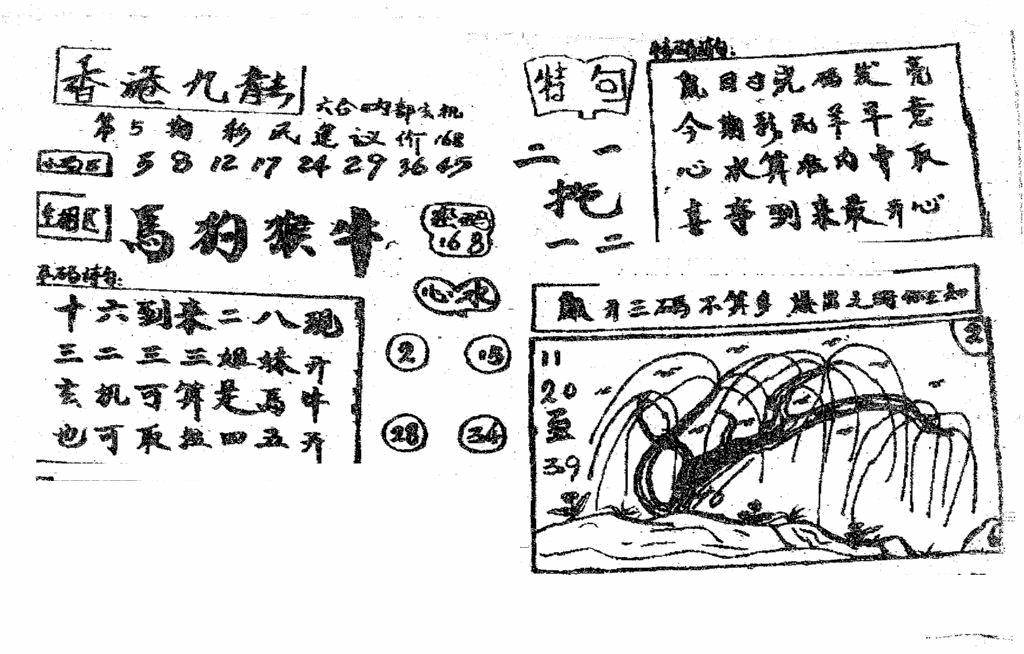 香港九龍
六合內部玄机
第5期 彩民建议价168
5 8 12 17 24 29 36 45
馬狗猴牛
168
心水
平码诗句:
十六到来二八现
三二三三姐妹开
玄机可算是馬牛
也可取拉四五开
2 15
28 34
特句
二 一
拖
一 二
特码诗句:
鼠目寸光码发亮
今期彩民羊平意
心水算准内中取
喜事到来最开心
鼠开三码不算多
2
11
20
39